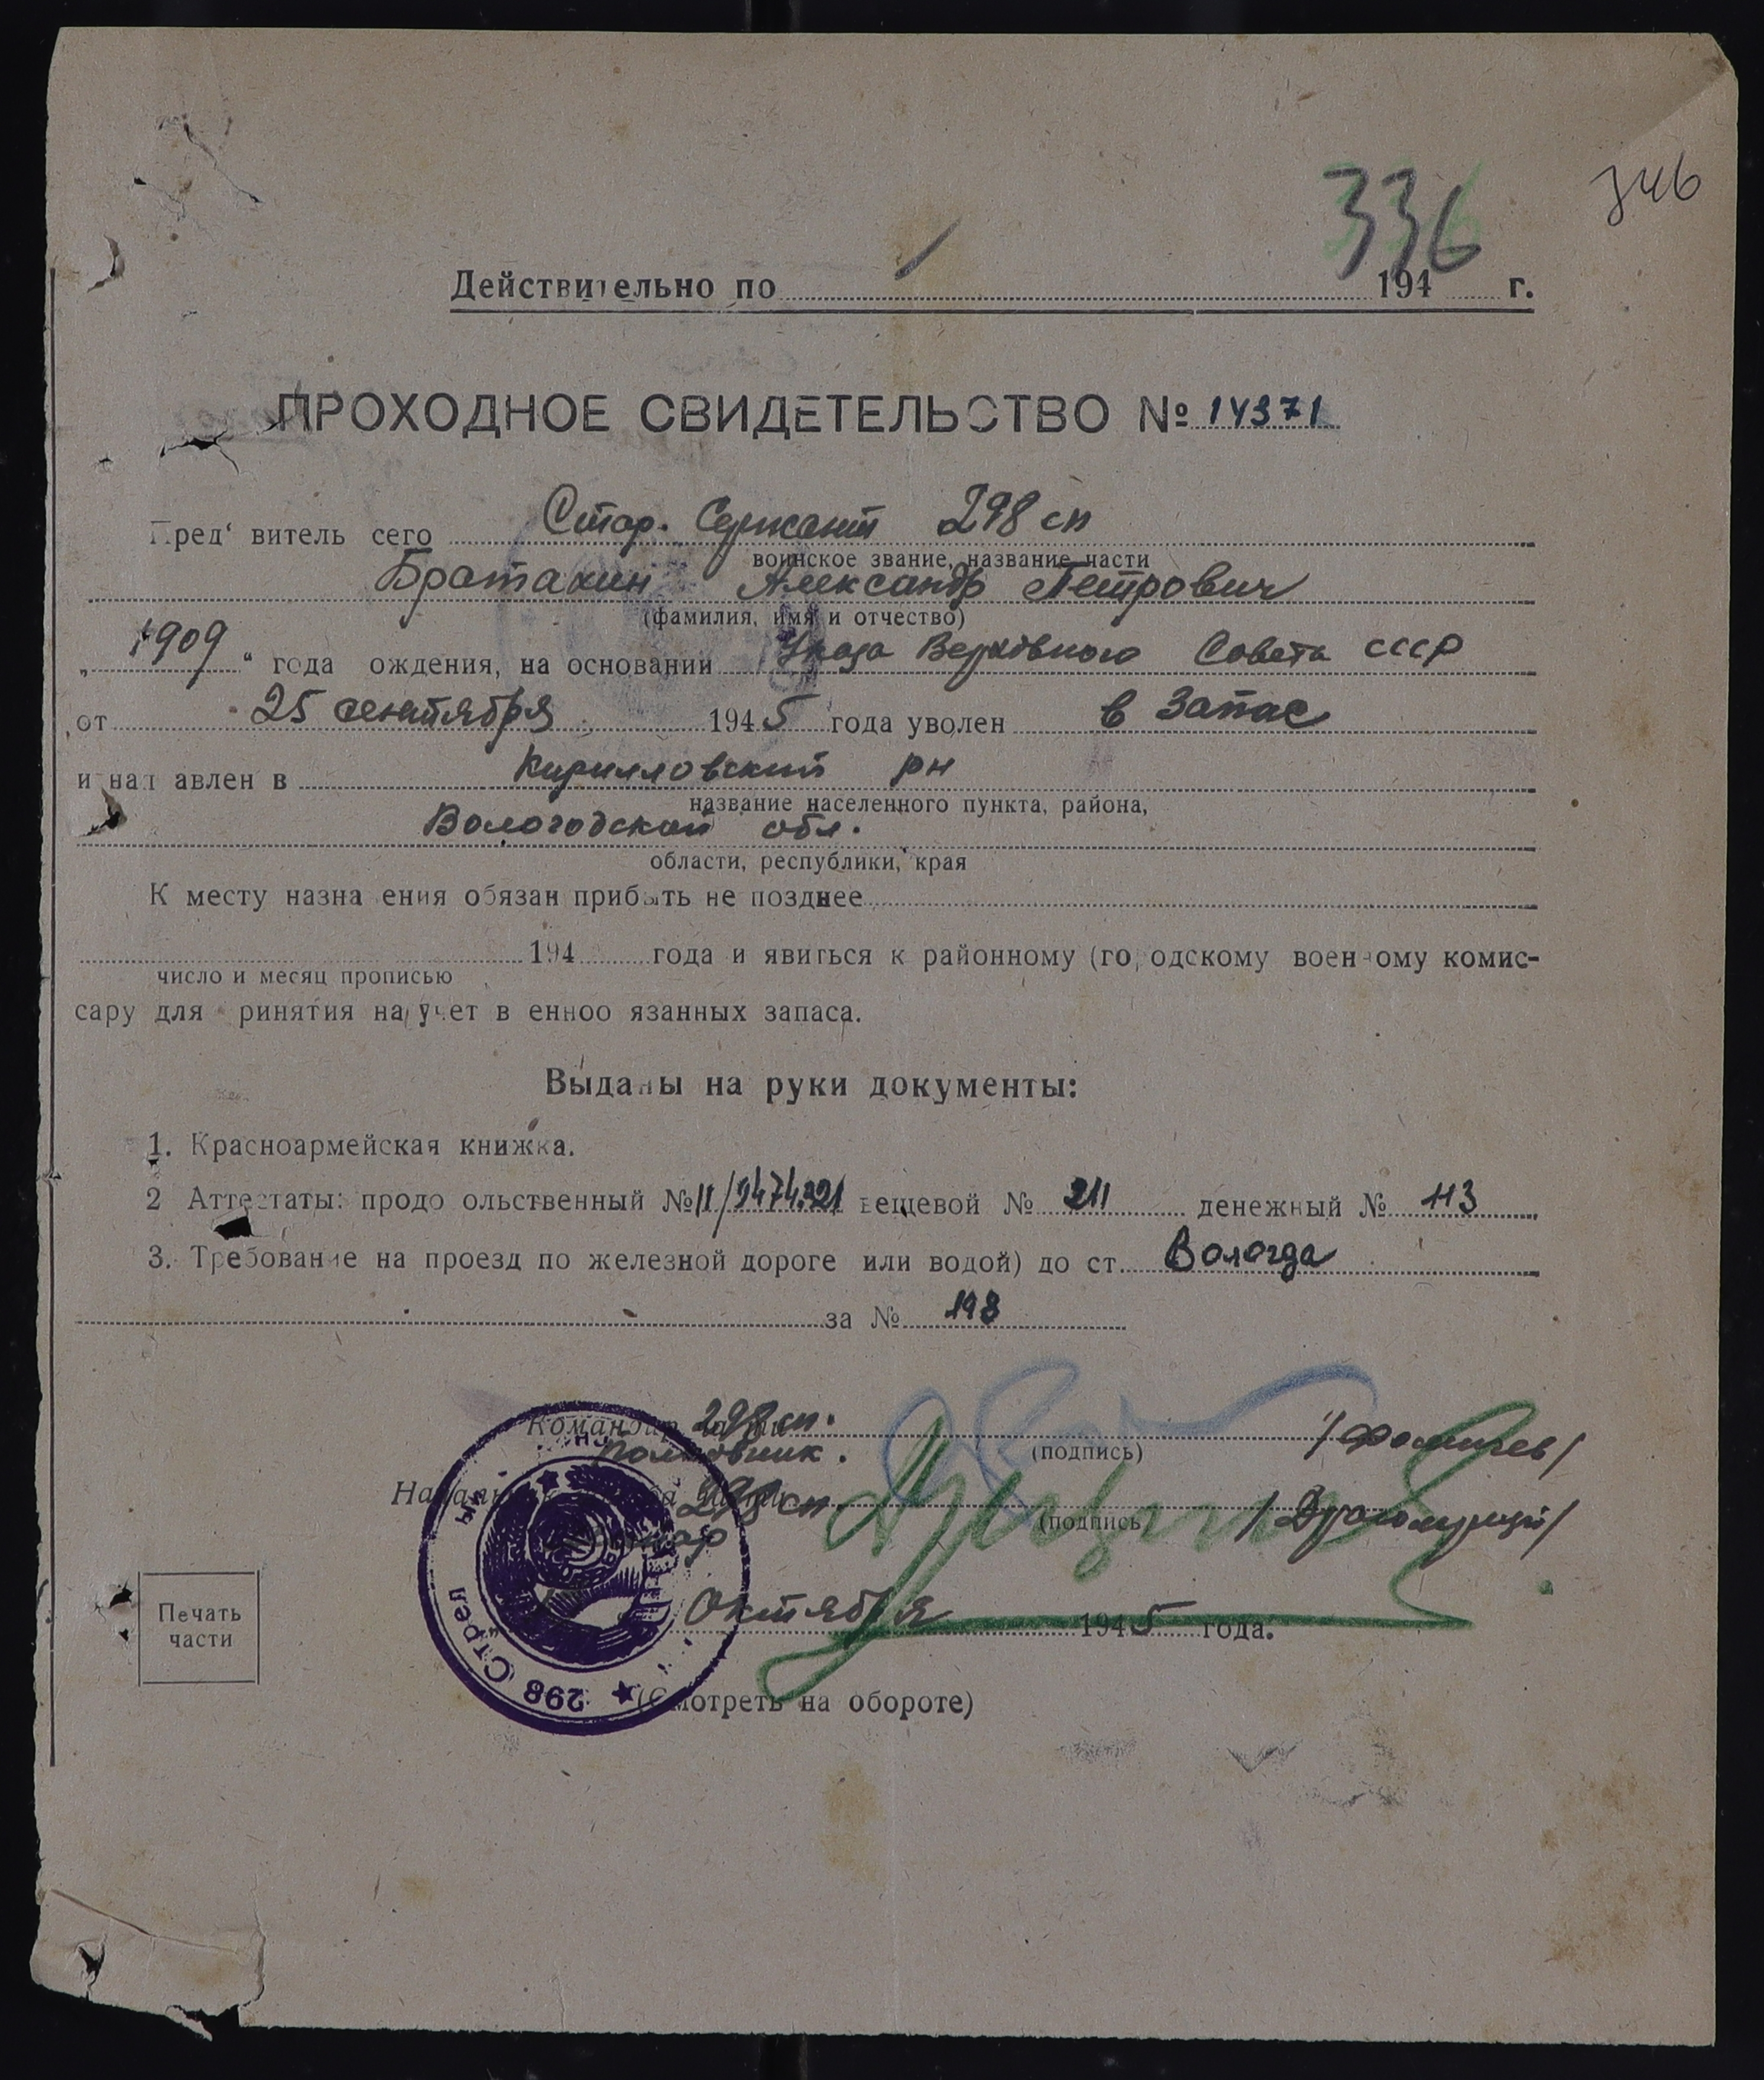 346
336
Действительно по 194 г.
ПРОХОДНОЕ СВИДЕТЕЛЬСТВО № 14371
Пред витель сего Стар. Сержант 298 сп
воинское звание, название части
Братахин Александр Петрович
(фамилия, имя и отчество)
„1909“ года ождения, на основании Указа Верховного Совета СССР
от 25 сентября 1945 года уволен в запас
и нап авлен в Кирилловский рн
название населенного пункта, района,
Вологодской обл.
области, республики, края
К месту назна ения обязан прибыть не позднее
194 года и явиться к районному (городскому военному комис-
число и месяц прописью
сару для ринятия на учет в енноо язанных запаса.
Выданы на руки документы:
1. Красноармейская книжка.
2 Аттестаты: продо ольственный № 11/2474221 вещевой № 211 денежный № 113
3. Требование на проезд по железной дороге или водой) до ст. Вологда
за № 198
Командир 298 сп.
полковник. (подпись) /Фомичев/
298 сп.
(подпись
Октября 1945 года.
Печать
части
298 Стрел
(Смотреть на обороте)